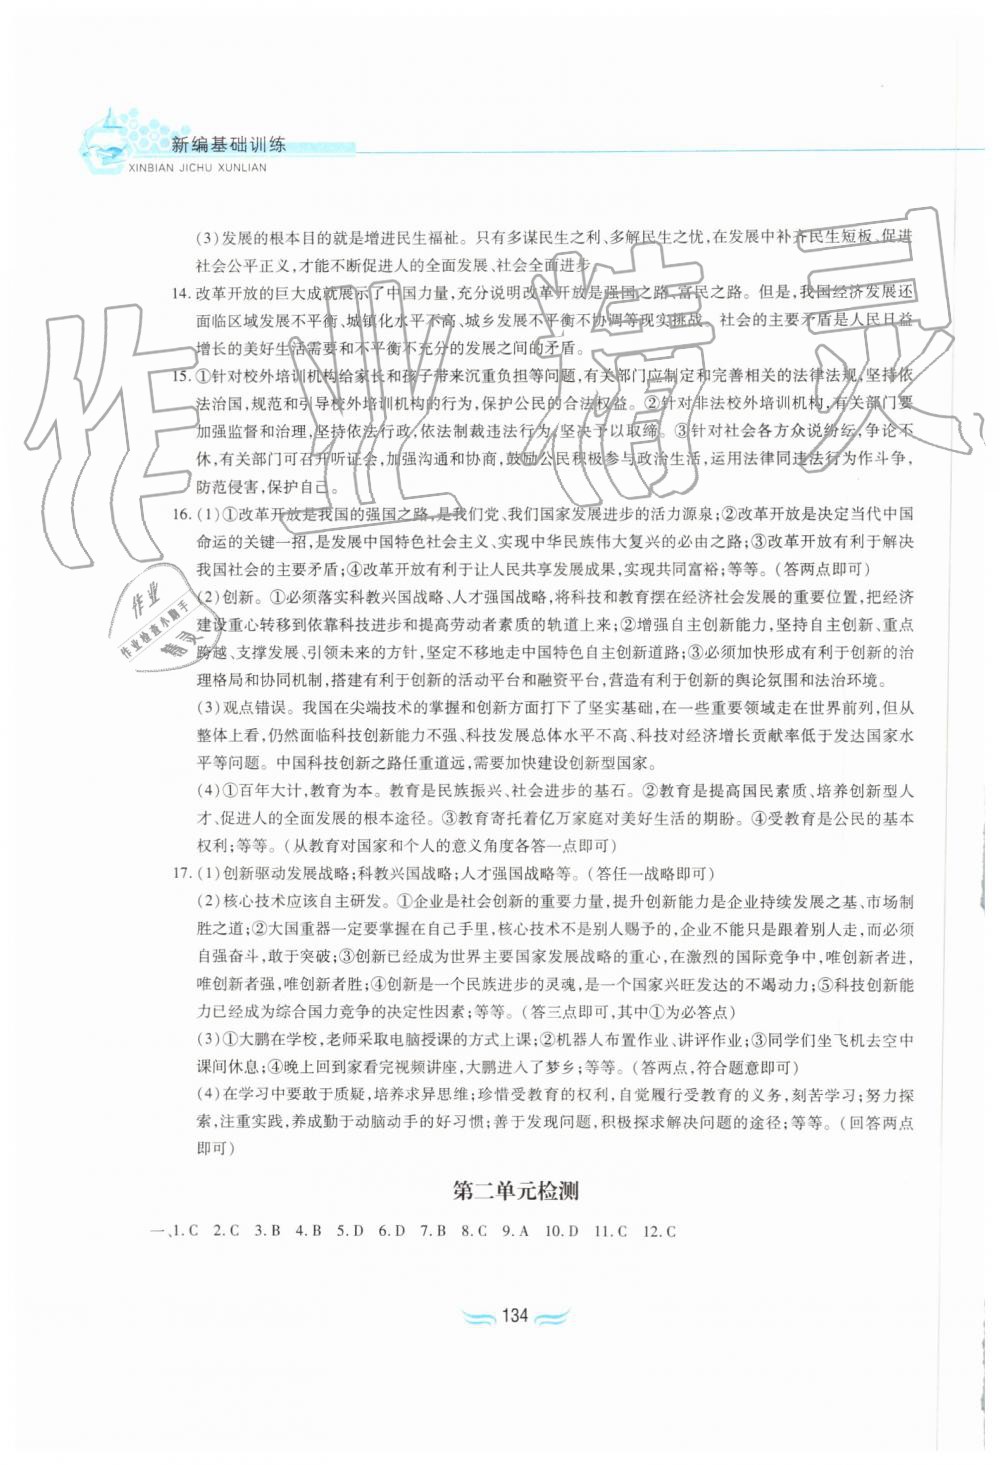 新编基础训练
XINBIAN JICHU XUNLIAN
(3)发展的根本目的就是增进民生福祉。只有多谋民生之利、多解民生之忧,在发展中补齐民生短板、促进
社会公平正义,才能不断促进人的全面发展、社会全面进步。
14. 改革开放的巨大成就展示了中国力量,充分说明改革开放是强国之路、富民之路。但是,我国经济发展还
面临区域发展不平衡、城镇化水平不高、城乡发展不平衡不协调等现实挑战。社会的主要矛盾是人民日益
增长的美好生活需要和不平衡不充分的发展之间的矛盾。
15. ①针对校外培训机构给家长和孩子带来沉重负担等问题,有关部门应制定和完善相关的法律法规,坚持依
法治国,规范和引导校外培训机构的行为,保护公民的合法权益。②针对非法校外培训机构,有关部门要
加强监督和治理,坚持依法行政,依法制裁违法行为,坚决予以取缔。③针对社会各方众说纷纭,争论不
休,有关部门可召开听证会,加强沟通和协商,鼓励公民积极参与政治生活,运用法律同违法行为作斗争,
防范侵害,保护自己。
16. (1)①改革开放是我国的强国之路,是我们党、我们国家发展进步的活力源泉;②改革开放是决定当代中国
命运的关键一招,是发展中国特色社会主义、实现中华民族伟大复兴的必由之路;③改革开放有利于解决
我国社会的主要矛盾;④改革开放有利于让人民共享发展成果,实现共同富裕;等等。(答两点即可)
(2)创新。①必须落实科教兴国战略、人才强国战略,将科技和教育摆在经济社会发展的重要位置,把经济
建设重心转移到依靠科技进步和提高劳动者素质的轨道上来;②增强自主创新能力,坚持自主创新、重点
跨越、支撑发展、引领未来的方针,坚定不移地走中国特色自主创新道路;③必须加快形成有利于创新的治
理格局和协同机制,搭建有利于创新的活动平台和融资平台,营造有利于创新的舆论氛围和法治环境。
(3)观点错误。我国在尖端技术的掌握和创新方面打下了坚实基础,在一些重要领域走在世界前列,但从
整体上看,仍然面临科技创新能力不强、科技发展总体水平不高、科技对经济增长贡献率低于发达国家水
平等问题。中国科技创新之路任重道远,需要加快建设创新型国家。
(4)①百年大计,教育为本。教育是民族振兴、社会进步的基石。②教育是提高国民素质、培养创新型人
才、促进人的全面发展的根本途径。③教育寄托着亿万家庭对美好生活的期盼。④受教育是公民的基本
权利;等等。(从教育对国家和个人的意义角度各答一点即可)
17. (1)创新驱动发展战略;科教兴国战略;人才强国战略等。(答任一战略即可)
(2)核心技术应该自主研发。①企业是社会创新的重要力量,提升创新能力是企业持续发展之基、市场制
胜之道;②大国重器一定要掌握在自己手里,核心技术不是别人赐予的,企业不能只是跟着别人走,而必须
自强奋斗,敢于突破;③创新已经成为世界主要国家发展战略的重心,在激烈的国际竞争中,唯创新者进,
唯创新者强,唯创新者胜;④创新是一个民族进步的灵魂,是一个国家兴旺发达的不竭动力;⑤科技创新能
力已经成为综合国力竞争的决定性因素;等等。(答三点即可,其中①为必答点)
(3)①大鹏在学校,老师采取电脑授课的方式上课;②机器人布置作业、讲评作业;③同学们坐飞机去空中
课间休息;④晚上回到家看完视频讲座,大鹏进入了梦乡;等等。(答两点,符合题意即可)
(4)在学习中要敢于质疑,培养求异思维;珍惜受教育的权利,自觉履行受教育的义务,刻苦学习;努力探
索,注重实践,养成勤于动脑动手的好习惯;善于发现问题,积极探求解决问题的途径;等等。(回答两点
即可)
第二单元检测
一、1. C 2. C 3. B 4. B 5. D 6. D 7. B 8. C 9. A 10. D 11. C 12. C
134
作业精灵
作业
作业检查小助手
精灵